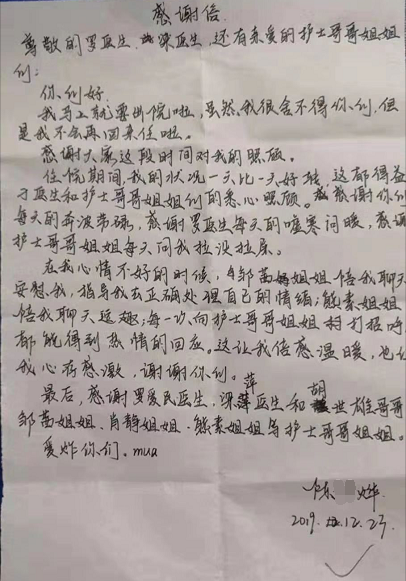 感谢信
尊敬的罗医生、梁医生,还有亲爱的护士哥哥姐姐
们:
你们好.
我马上就要出院啦,虽然我很舍不得你们,但
是我不会再回来住啦。
感谢大家这段时间对我的照顾。
住院期间,我的状况一天比一天好转,这都得益
于医生和护士哥哥姐姐们的悉心照顾。感谢你们
每天的奔波劳碌,感谢罗医生每天的嘘寒问暖,感谢
护士哥哥姐姐每天问我拉没拉屎。
在我心情不好的时候,邹苗姐姐陪我聊天
安慰我,指导我去正确处理自己的情绪;熊素姐姐
陪我聊天逗趣;每一次向护士哥哥姐姐打招呼
都能得到热情的回应。这让我倍感温暖,也让
我心存感激,谢谢你们。
最后,感谢罗爱民医生,梁萍医生和胡世雄哥哥
邹苗姐姐、肖静姐姐、熊素姐姐等护士哥哥姐姐。
爱炸你们。mua
陈 烨
2019.12.23